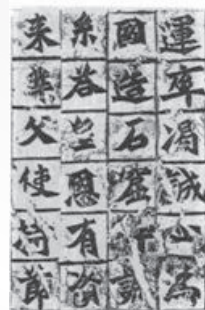 運率渴誠心為
國造石窟
糸答皇恩有資
来業父使持節